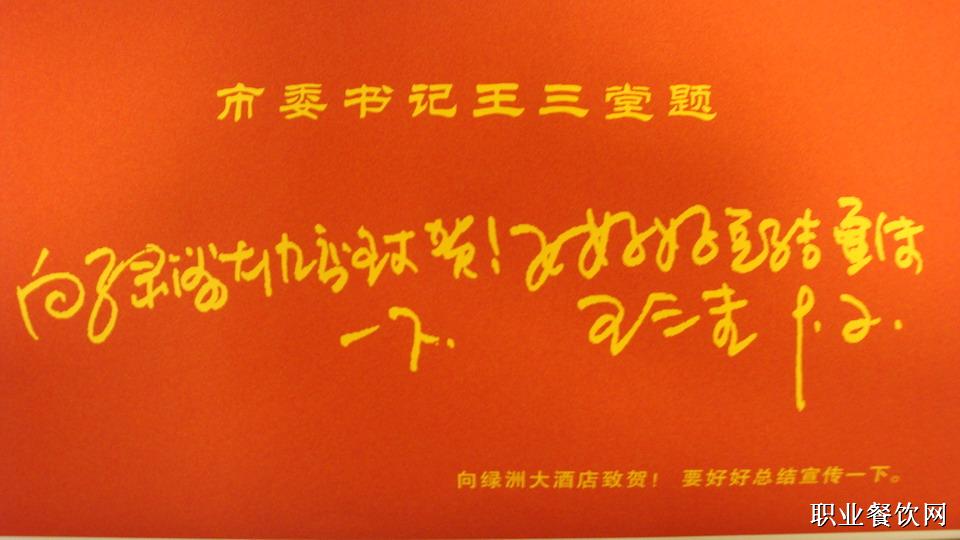 市委书记王三堂题
向绿洲大酒店致贺！要好好总结宣传
一下.
王三堂 9.2.
向绿洲大酒店致贺！ 要好好总结宣传一下。
职业餐饮网